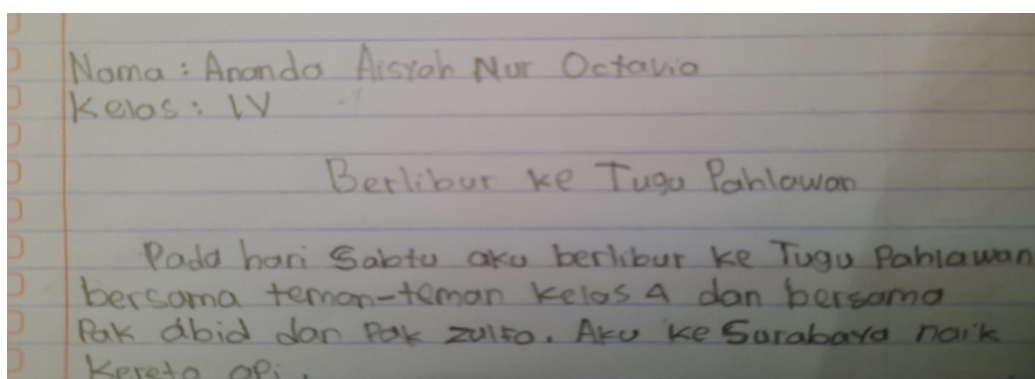 Nama : Ananda Aisyah Nur Octavia
Kelas : IV
Berlibur ke Tugu Pahlawan
Pada hari Sabtu aku berlibur ke Tugu Pahlawan
bersama teman-teman kelas 4 dan bersama
Pak abid dan Pak. Aku ke Surabaya naik
Kereta api.